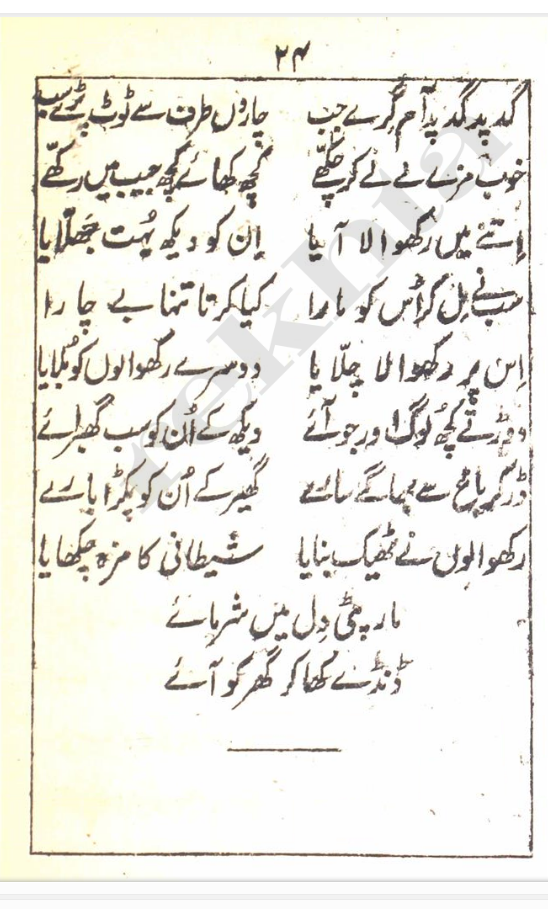 ۲۴
گد پد گد پد آم گرے جب چاروں طرف سے ٹوٹ پڑے سب
خوب مزے لے لے کر چکھّے کچھ کھائے کچھ جیب میں رکھّے
اِتنے میں رکھوالا آیا اِن کو دیکھ بُہت جھلّایا
سب نے مِل کر اُس کو مارا کیا کرتا تنہا بے چارا
اِس پر رکھوالا چلّایا دوسرے رکھوالوں کو بُلایا
دوڑتے کچھ لوگ اور جو آئے دیکھ کے اُن کو سب گھبرائے
ڈر کر باغ سے بھاگے سارے گھیر کے اُن کو پکڑا پارے
رکھوالوں نے ٹھیک بنایا شیطانی کا مزہ چکھایا
مار پٹی دِل میں شرمائے
ڈنڈے کھا کر گھر کو آئے
rekhta